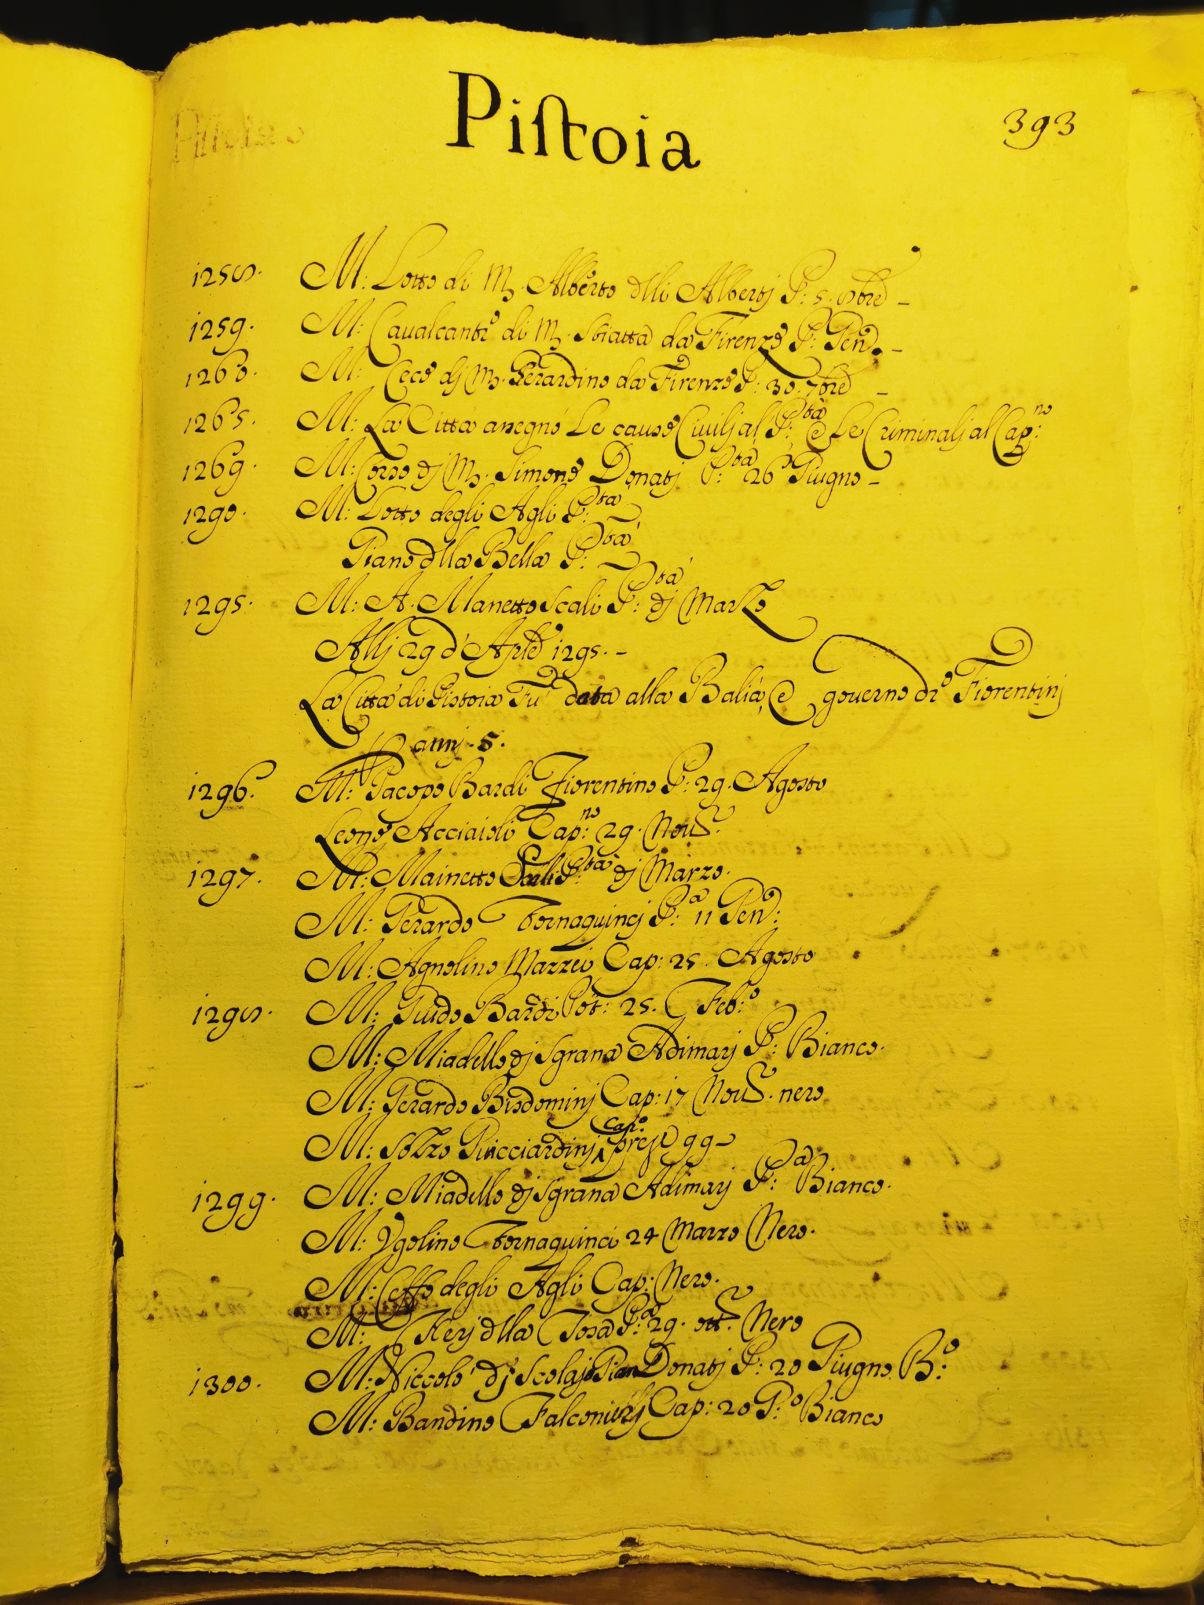 Piſtoia
393
1258. M: Lotto di M. Alberto dlli Albertj P: 5. 9bre
1259. M: Cavalcante di M. Sciatta da Firenze P: Gen.
1260. M: Cece dj M. Gerardino da Firenze P: 30. 7bre
1265. M: La Città assegnò Le cause Ciuilj al P:tà e Le Criminalj al Cap:no
1269. M: Corso dj M. Simone Donatj P:tà 26 Giugno
1290. M: Lotto degli Agli P:tà
Giano dlla Bella P:tà
1295. M: A. Manetto Scali P:tà dj Marzo
Allj 29 d' Aple 1295.
La Città di Pistoia Fù data alla Balià, e governo de Fiorentinj
P annj. 5.
1296. M: Jacopo Bardi Fiorentino P: 29. Agosto
Leone Acciaioli Cap:no 29. Nov.
1297. M: Mainetto Scali P:tà dj Marzo.
M: Gerardo Tornaquincj P:a 11 Gen:
M: Agnolino Mazzei Cap: 25. Agosto
1298. M: Guido Bardi Pot: 25. Feb:o
M: Miadello dj Sgrana Adimarj P: Bianco.
M: Gerardo Bisdominj Cap: 17 Nov. nero
M: Sozzo Guicciardinj Cap:o preso 99
1299. M: Miadello dj Sgrana Adimarj P:a Bianco.
M: Vgolino Tornaquinci 24 Marzo Nero.
M: Ceffo degli Agli Cap: Nero.
M: dlla Tosa P:a 29. ott. Nero
1300. M: Niccolò dj Scolajo Gian Donatj P: 20 Giugno. B:o
M: Bandino Falconierj Cap: 20 G:o Bianco